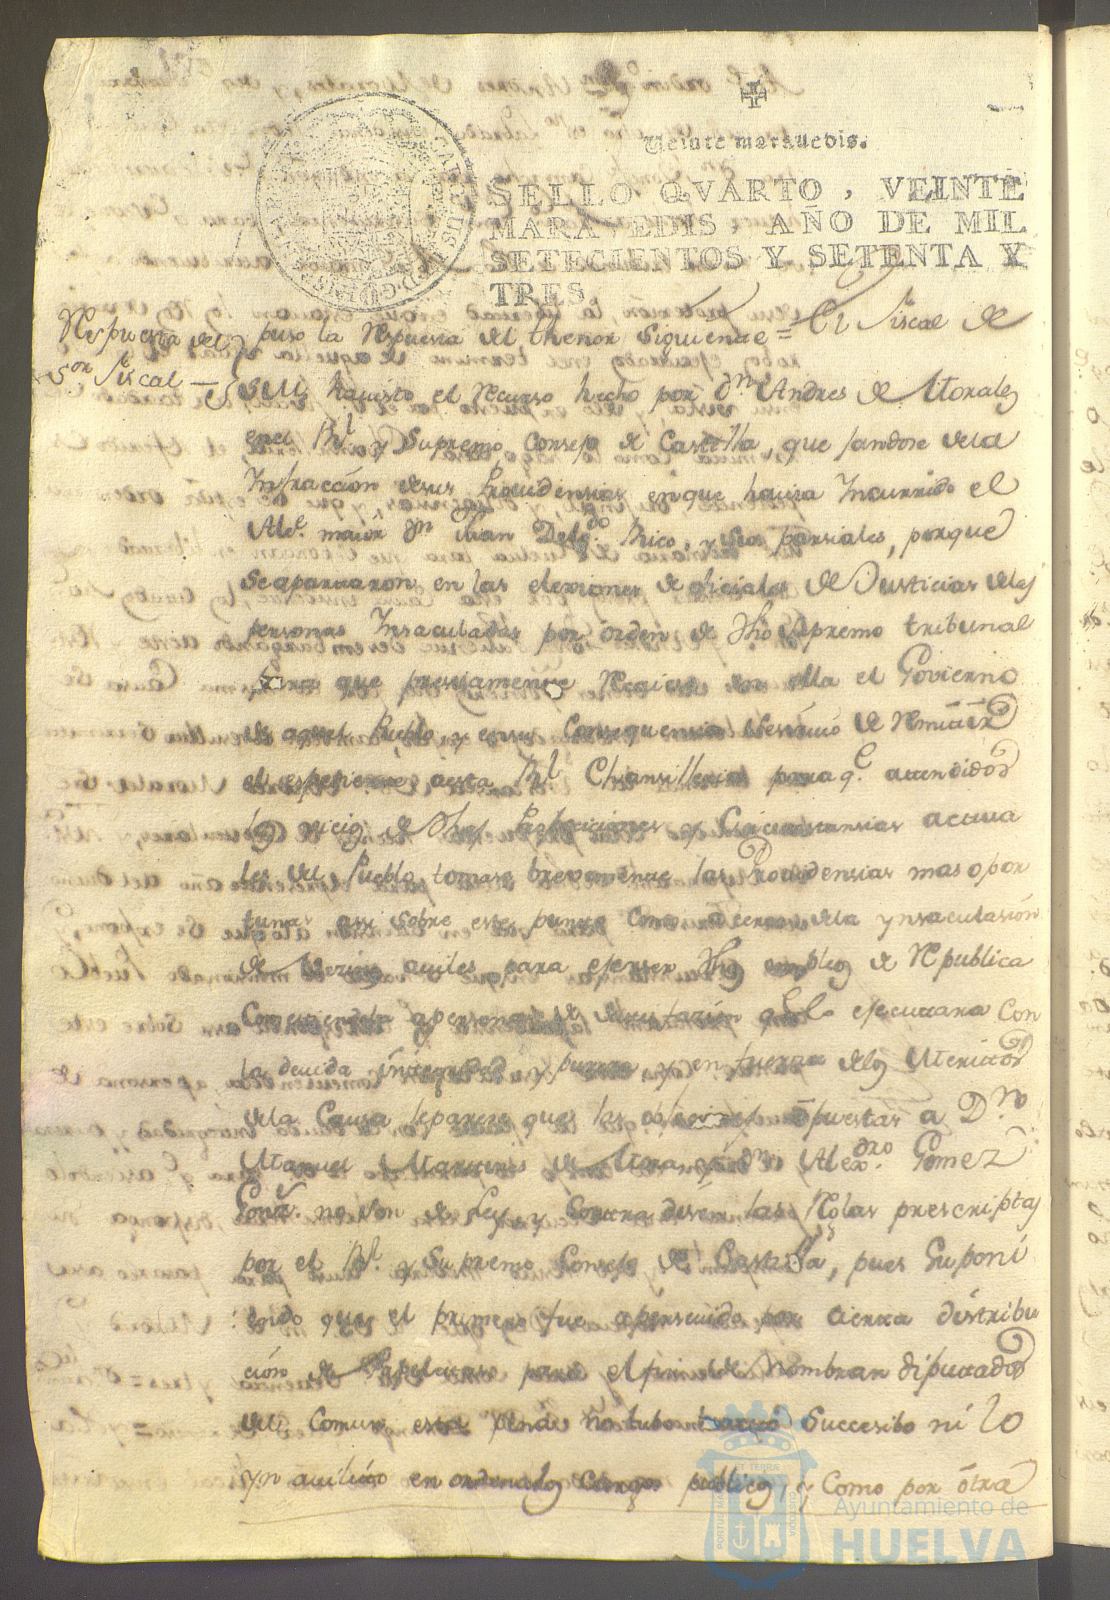 Veinte maravedis.
SELLO QVARTO, VEINTE
MARAVEDIS, AÑO DE MIL
SETECIENTOS Y SETENTA Y
TRES.
Respuesta del
Sor Fiscal
puso la Respuesta del thenor Siguiente = El Fiscal de
SM. ha visto el Recurso hecho por Dn Andres de Morales
en el Rl y Supremo Consejo de Castilla, quejandose de la
Infraccion de sus Providensias en que havia Incurrido el
Alce. maior Dn Juan Delgdo. Rico, y sus parsiales, porque
se apartaron en las elexiones de oficiales de Justicias de los
personas Insaculadas por orden de dho Supremo tribunal
para que presisamente Regiese en ella el Govierno
de aquel Pueblo y en su Consequensia se sirvió de Remitir
el espediente a esta Rl Chansilleria para qe. atendidos
los vicios de dhas Elecciones y Circunstansias actua
les del Pueblo tomase brevemente las Providensias mas opor
tunas assi sobre este punto como acerca de la ynsaculasión
de Vezinos aviles para ejerser dhos empleos de Republica
Cometiendola a persona de su satisfazión qe. lo ejecutara con
la devida integridad y pureza, y en fuerza de los Meritos
de la Causa, le parese que las objeciones opuestas a Dn
Manuel Martines de Mora y Dn Alexdro. Gomez
no son de Ley y Contra disen las Reglas prescriptas
por el Rl. y Supremo Consejo de Castilla, pues Suponi
endo que el primero fue apersevido por cierta distribu
ción de papeletas para el fin de Nombrar diputados
del Comun esta pena no tubo tracto Succesibo ni lo
ynavilitó en orden a los Cargos publicos, y como por ótra
PORTUS MARIS ET TERRÆ CUSTODIA
Ayuntamiento de
HUELVA